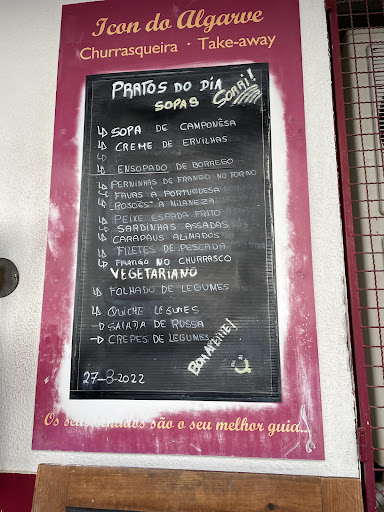 Icon do Algarve
Churrasqueira · Take-away
PRATOS DO DIA
SOPAS
SORRI!
SOPA DE CAMPONÊSA
CREME DE ERVILHAS
ENSOPADO DE BORREGO
PERNINHAS DE FRANGO NO FORNO
FAVAS À PORTUGUESA
À MILANEZA
PEIXE ESPADA FRITO
SARDINHAS ASSADAS
CARAPAUS ALIMADOS
FILETES DE PESCADA
FRANGO NO CHURRASCO
VEGETARIANO
FOLHADO DE LEGUMES
QUICHE LEGUMES
SALADA DE RUSSA
CREPES DE LEGUMES
BOM APETITE!
27-8-2022
Os seus são o seu melhor guia...